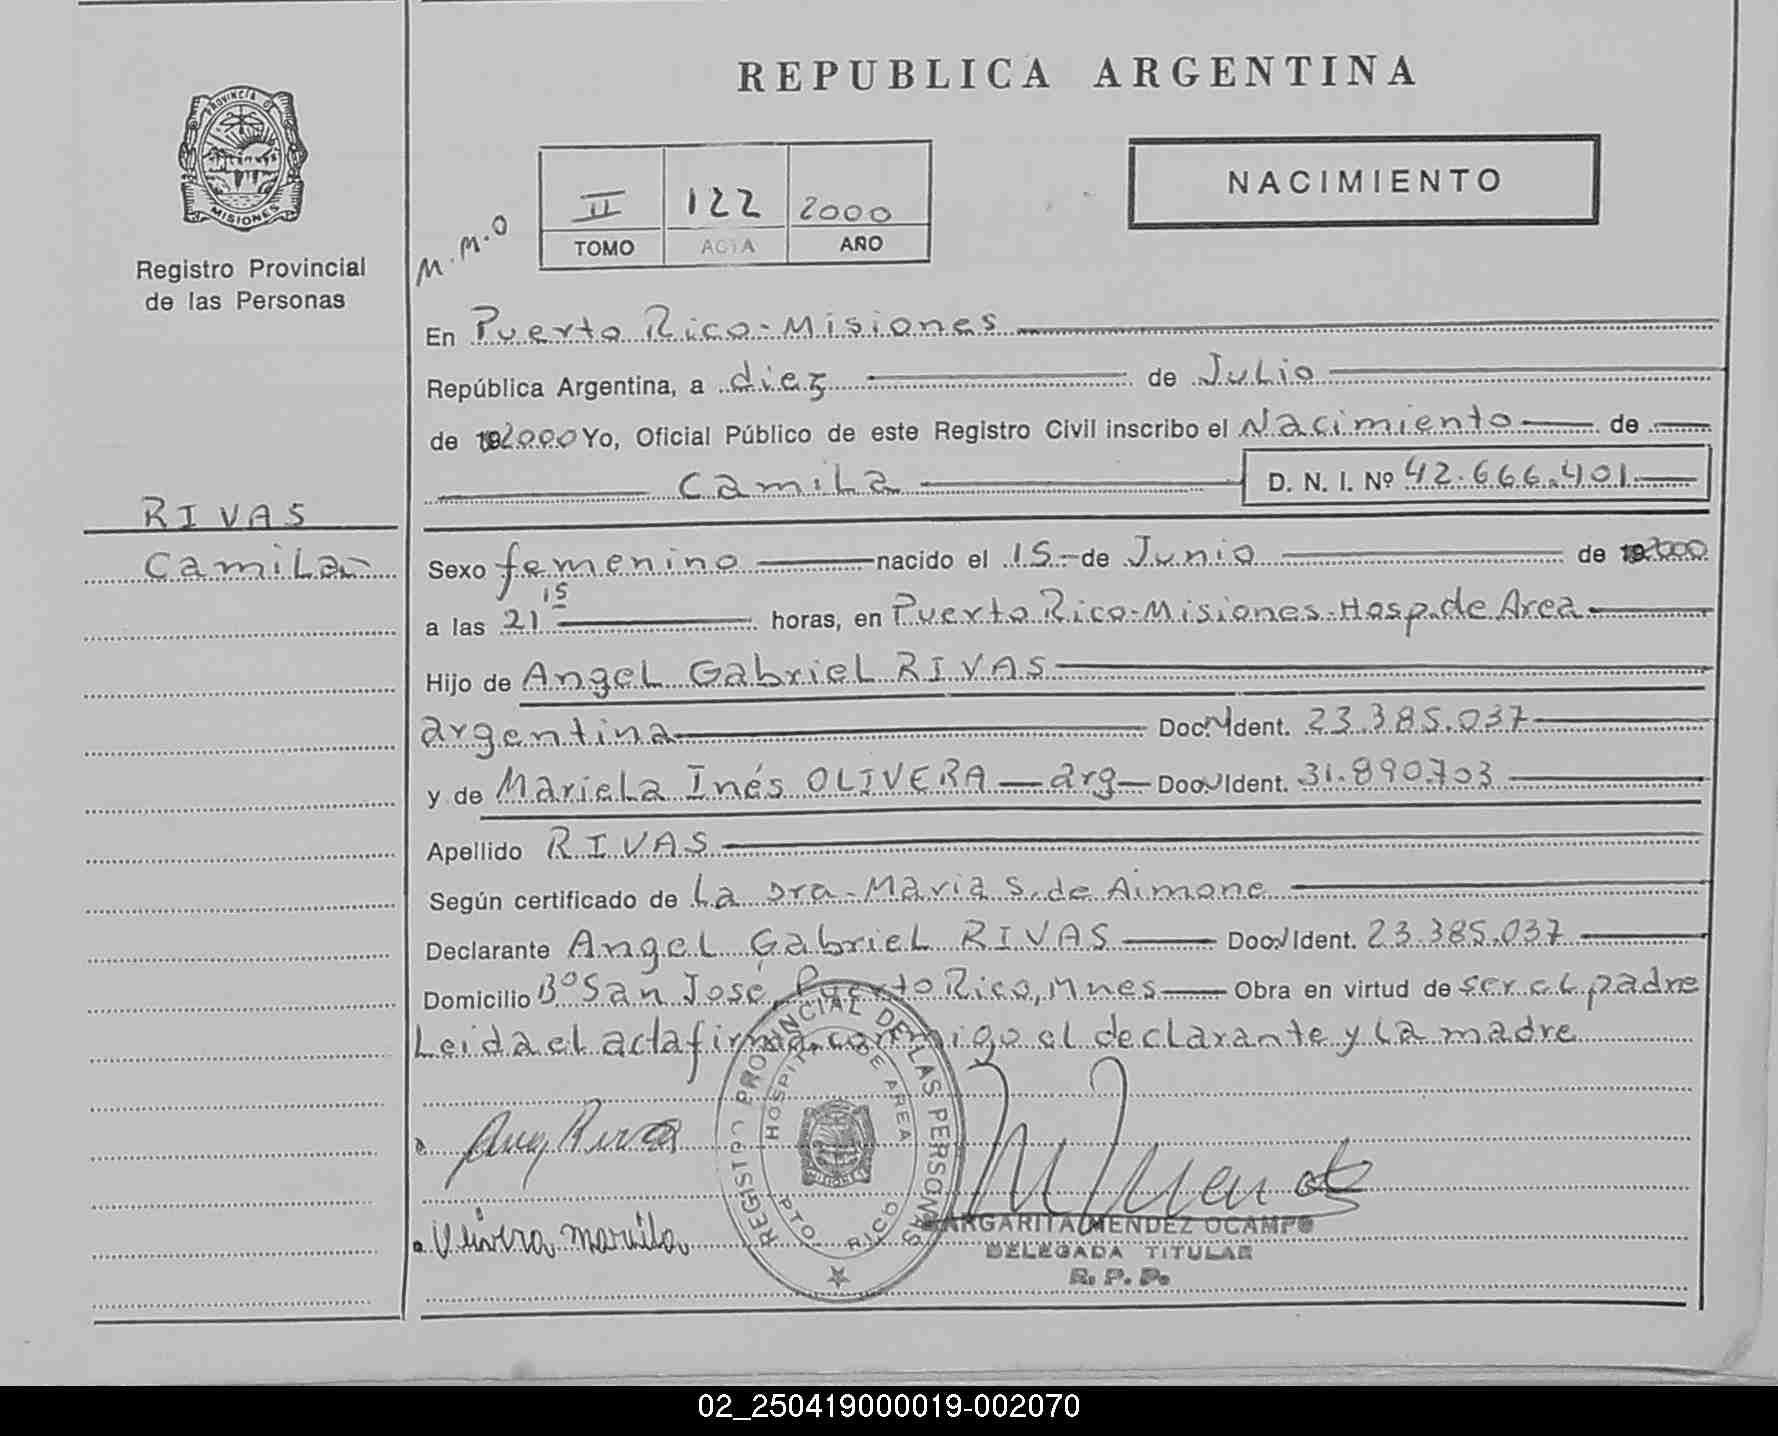 REPUBLICA ARGENTINA
PROVINCIA DE
MISIONES
Registro Provincial
de las Personas
II 122 2000
TOMO ACTA AÑO
NACIMIENTO
M.M.O
En Puerto Rico - Misiones
República Argentina, a diez de Julio
de 192000 Yo, Oficial Público de este Registro Civil inscribo el Nacimiento de
Camila D. N. I. Nº 42.666.401
RIVAS
Camila
Sexo femenino nacido el 15 - de Junio de 192000
a las 21 15 horas, en Puerto Rico - Misiones - Hosp. de Area
Hijo de Angel Gabriel RIVAS
argentina Doc. N Ident. 23.385.037
y de Mariela Inés OLIVERA — arg — Doc. N Ident. 31.890.703
Apellido RIVAS
Según certificado de La Dra. Maria S. de Aimone
Declarante Angel Gabriel RIVAS Doc. N Ident. 23.385.037
Domicilio Bº San José, Puerto Rico, Mnes Obra en virtud de ser el padre
Leida el acta firma conmigo el declarante y la madre
REGISTRO PROVINCIAL DE LAS PERSONAS
HOSPITAL DE AREA
PTO RICO
MISIONES
Olivera Mariela
MARGARITA MENDEZ OCAMPO
DELEGADA TITULAR
R. P. P.
02_250419000019-002070